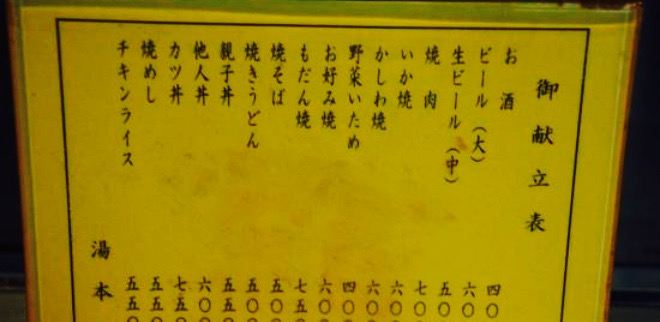 御献立表
お酒 四〇〇
ビール(大) 六〇〇
生ビール(中) 五〇〇
焼肉 七〇〇
いか焼 六〇〇
かしわ焼 六〇〇
野菜いため 四〇〇
お好み焼 六〇〇
もだん焼 七五〇
焼そば 五〇〇
焼きうどん 五〇〇
親子丼 五五〇
他人丼 六〇〇
カツ丼 七五〇
焼めし 五五〇
チキンライス 五五〇
湯本